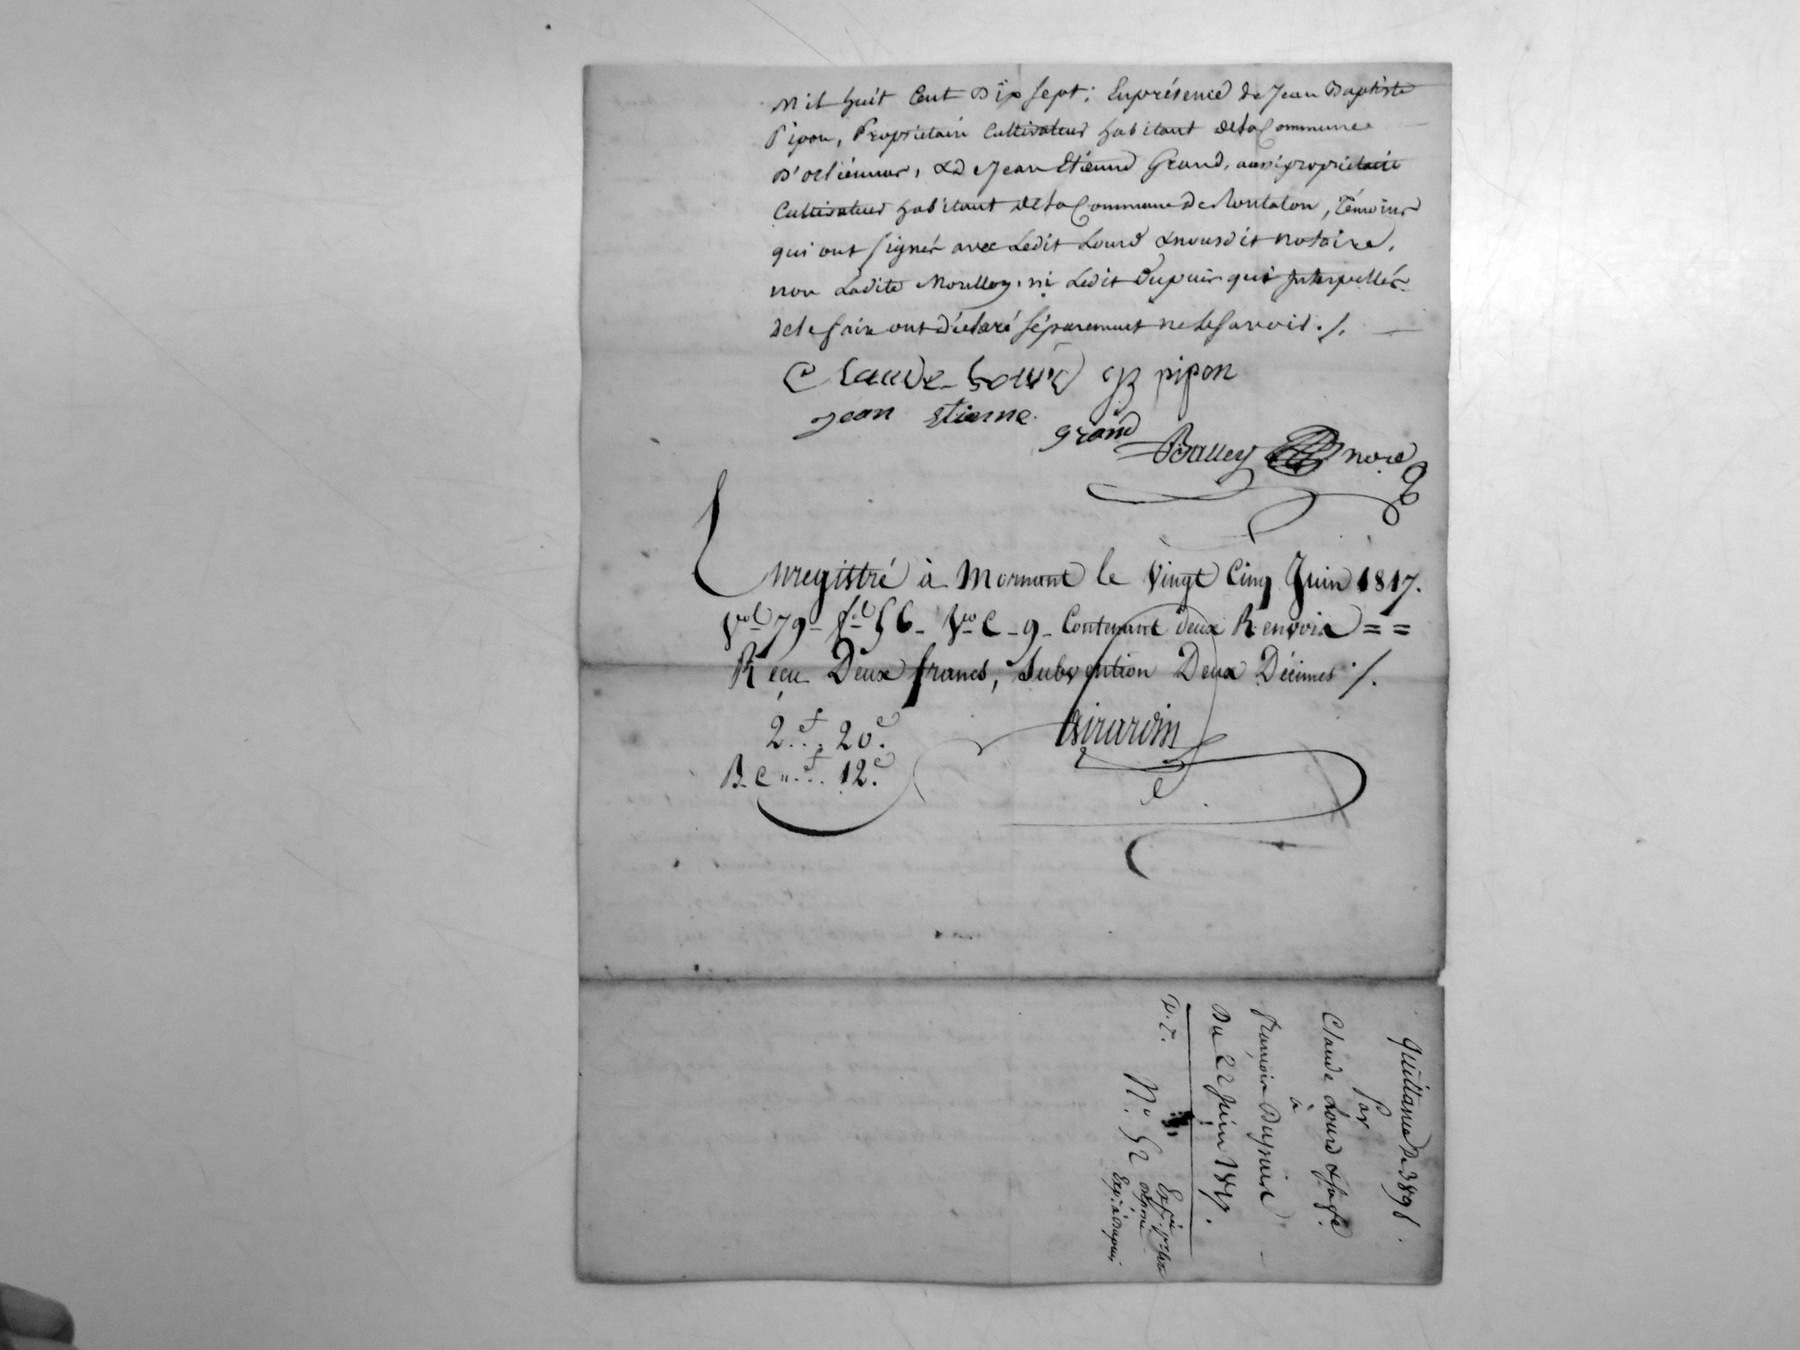 mil huit Cent Dix Sept; En présence de Jean Baptiste
Pipon, Propriétaire Cultivateur habitant de la Commune
D'orliénnas, & de Jean Etienne Grand, aussi propriétaire
Cultivateur habitant de la Commune de Rontalon, Témoins
qui ont signés avec Ledit Lourd & nousdit notaire,
non Ladite Moullon, ni Ledit Dupuis qui Interpellés
de le faire ont déclaré séparement ne le savoir ./.
Claude Lourd JB pipon
jean Etienne
grand
Balley nore
Enregistré à Mornant le Vingt Cinq Juin 1817.
Vol 79 fol 56 Vo C 9 Contenant deux Renvois = =
Reçu Deux francs, Subvention Deux Décimes ./.
2.f. 20.c
B. C ".f. 12.c
Girardin
Quittance De 389f.
Par
Claude Lourd & sa fe
à
François Dupuis
Du 22 Juin 1817.
D. T.
N.o 52